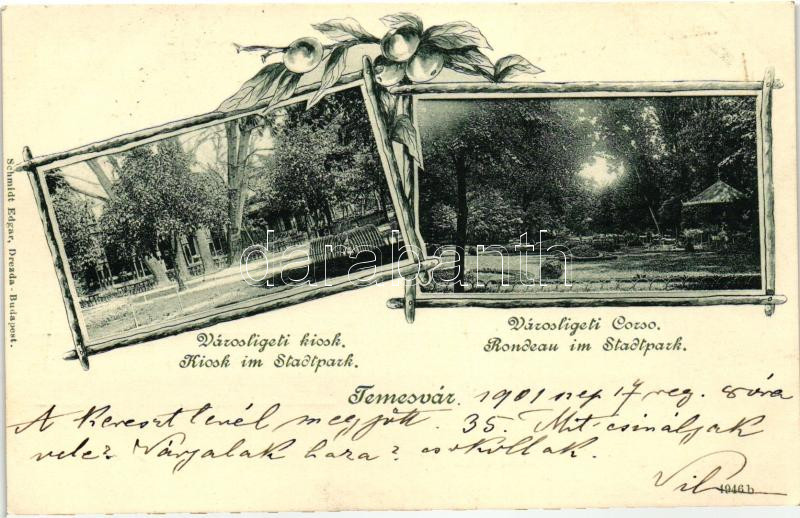 Schmidt Edgar, Drezda - Budapest.
Városligeti kiosk.
Kiosk im Stadtpark.
Városligeti Corso.
Rondeau im Stadtpark.
darabanth
Temesvár. 1901 sep 17 reg. 8 óra
A Keresztlevél megjött. 35. Mit csináljak
vele? Várjalak haza? csókollak.
Vil
4946 b